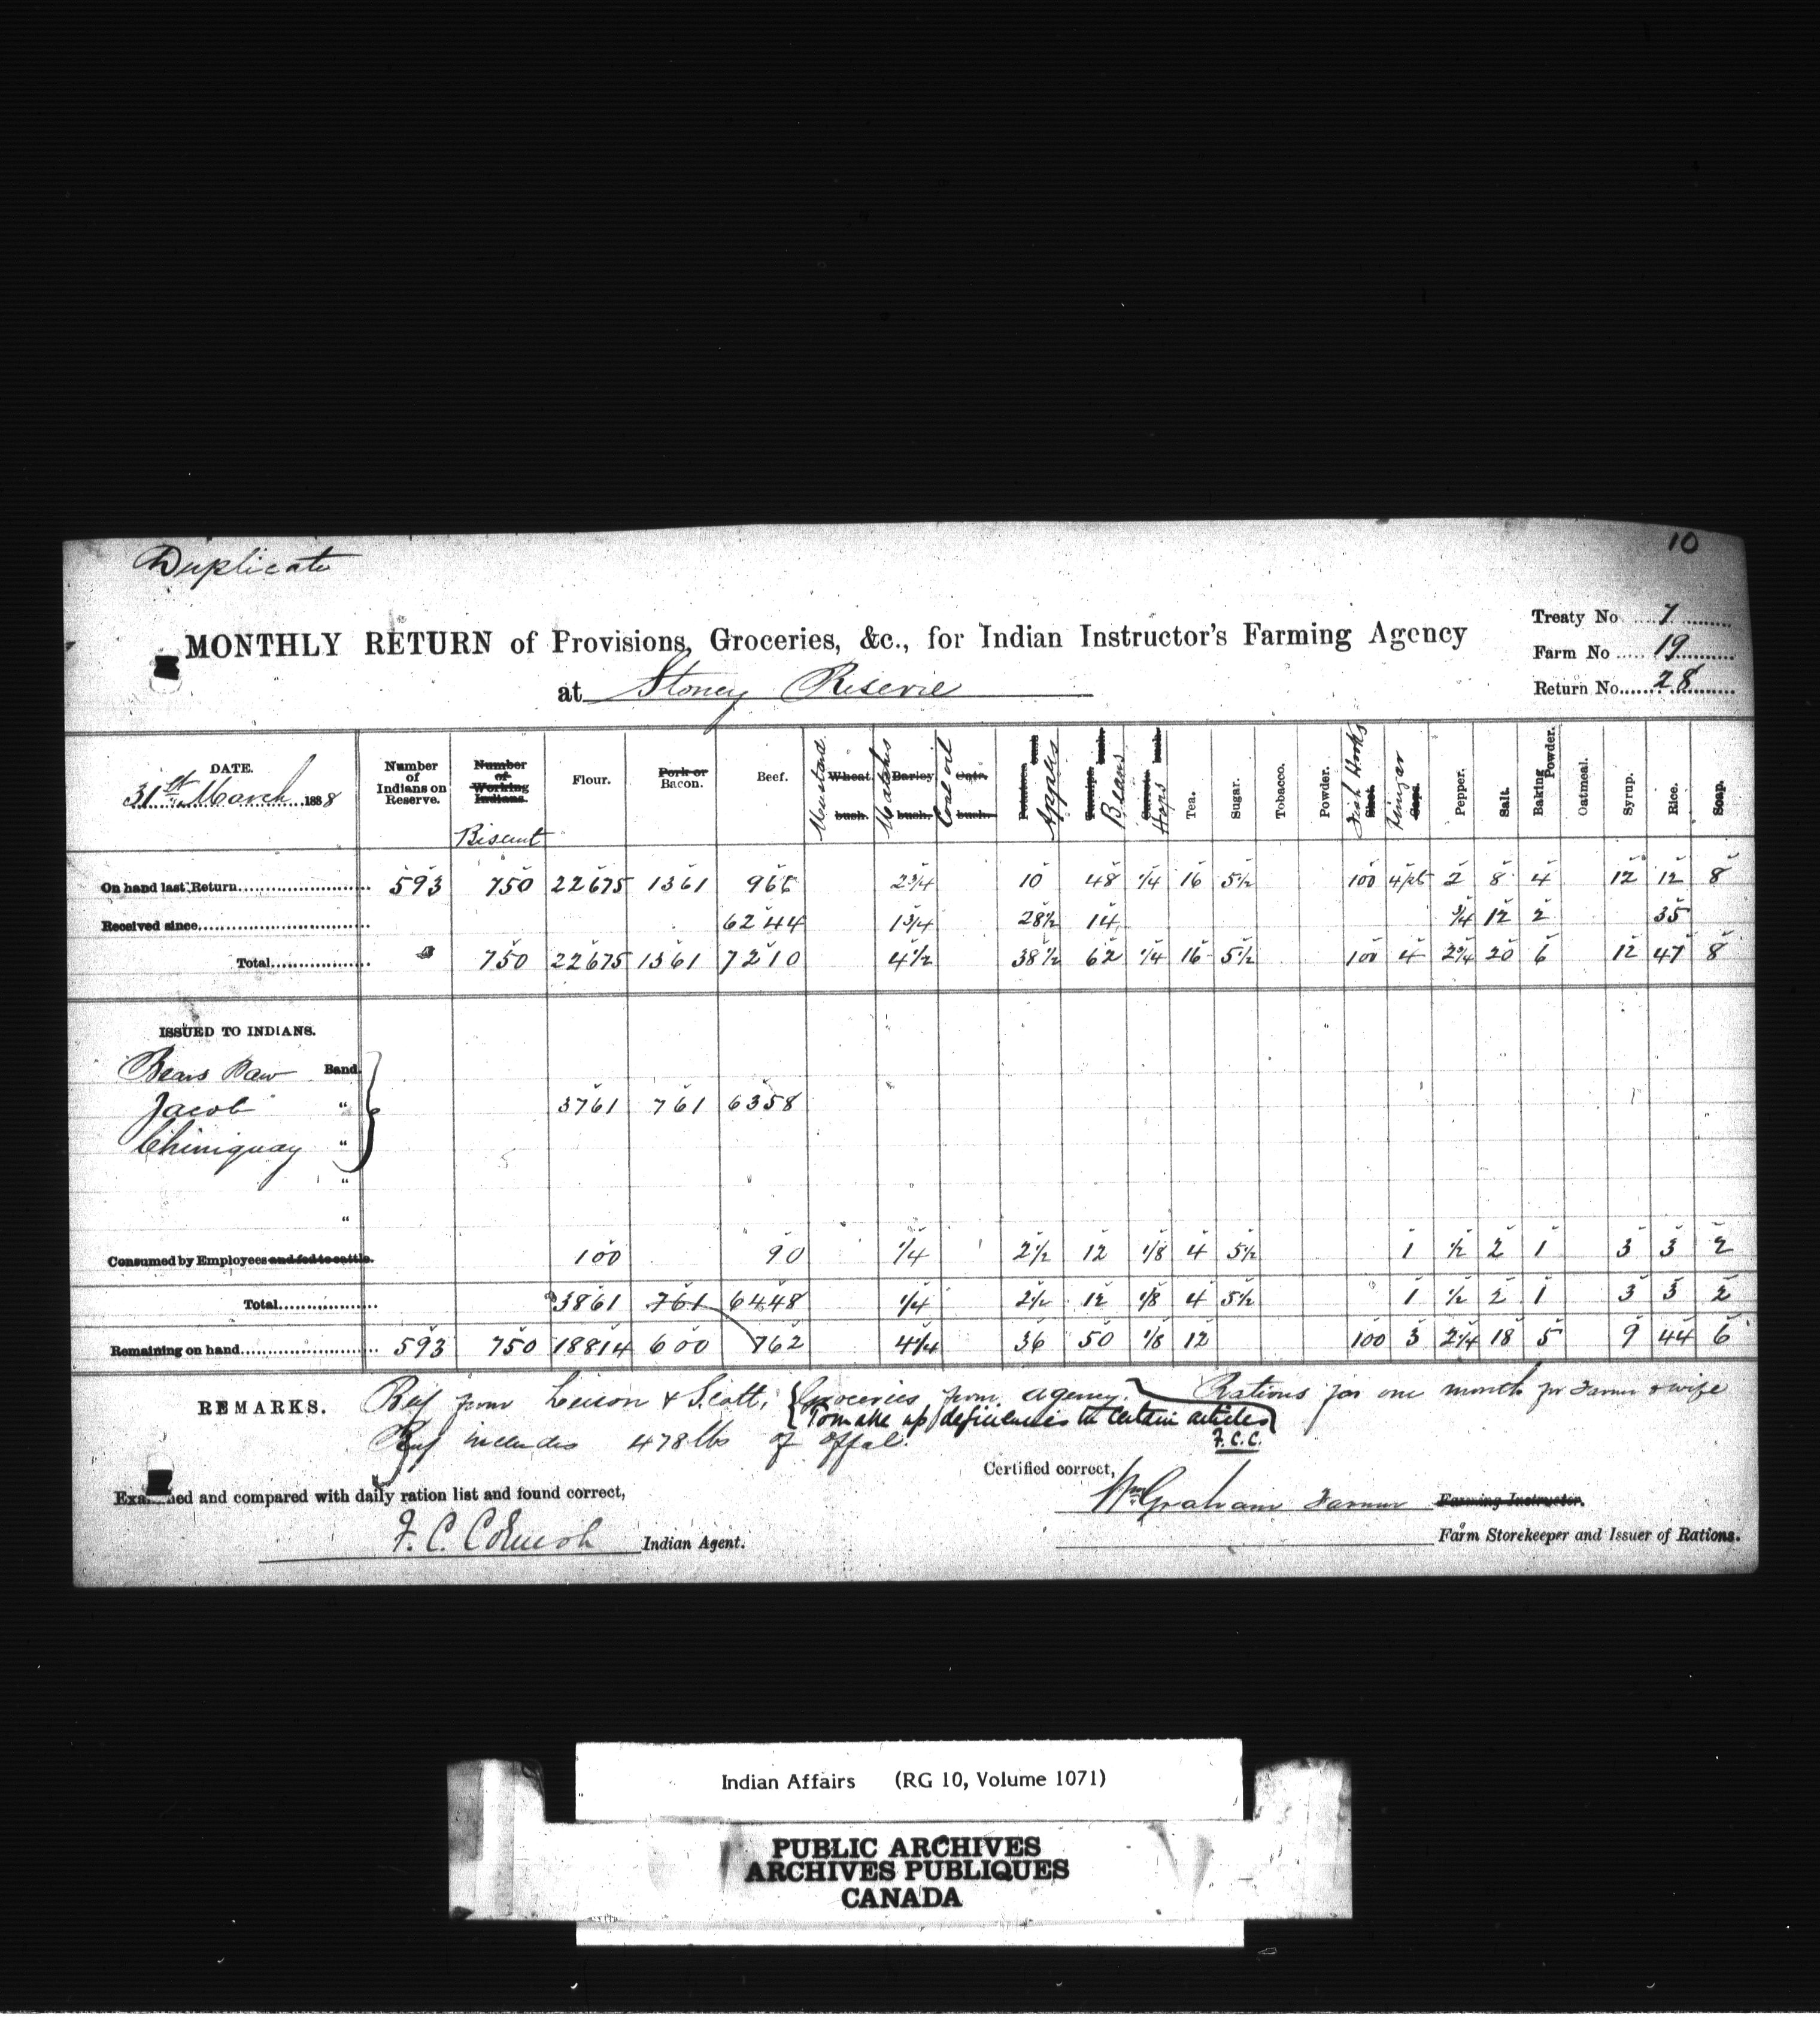 Duplicate
10
MONTHLY RETURN of Provisions, Groceries, &c., for Indian Instructor's Farming Agency
at Stoney Reserve
Treaty No 7
Farm No 19
Return No. 28
DATE. 31st March 1888
Number of Indians on Reserve. Number of Working Indians. Biscuit Flour. Pork or Bacon. Beef. Mustard Wheat. bush. Matches Barley bush. Coal oil Oats. bush. Potatoes bush Apples Turnips. bush. Beans Carrots bush. Hops Tea. Sugar. Tobacco. Powder. Fish Hooks Shot. Ginger Caps. Pepper. Salt. Baking Powder. Oatmeal. Syrup. Rice. Soap.
On hand last Return 593 750 22675 1361 966 2 3/4 10 48 1/4 16 5 1/2 100 4 pts 2 8 4 12 12 8
Received since 6244 1 3/4 28 1/2 14 3/4 12 2 35
Total 750 22675 1361 7210 4 1/2 38 1/2 62 1/4 16 5 1/2 100 4 2 3/4 20 6 12 47 8
ISSUED TO INDIANS.
Bears Paw Band
Jacob " 3761 761 6358
Chiniquay "
"
"
Consumed by Employees and fed to cattle. 100 90 1/4 2 1/2 12 1/8 4 5 1/2 1 1/2 2 1 3 3 2
Total 3861 761 6448 1/4 2 1/2 12 1/8 4 5 1/2 1 1/2 2 1 3 3 2
Remaining on hand 593 750 18814 600 762 4 1/4 36 50 1/8 12 100 3 2 1/4 18 5 9 44 6
REMARKS. Beef from & Scott, Groceries from agency. Rations for one month for Farmer & wife
To make up deficiencies in certain articles
F.C.C.
Beef includes 478 lbs of offal.
Certified correct,
Examined and compared with daily ration list and found correct,
Wm Graham Farmer Farming Instructor.
F. C. Cornish Indian Agent.
Farm Storekeeper and Issuer of Rations.
Indian Affairs (RG 10, Volume 1071)
PUBLIC ARCHIVES
ARCHIVES PUBLIQUES
CANADA